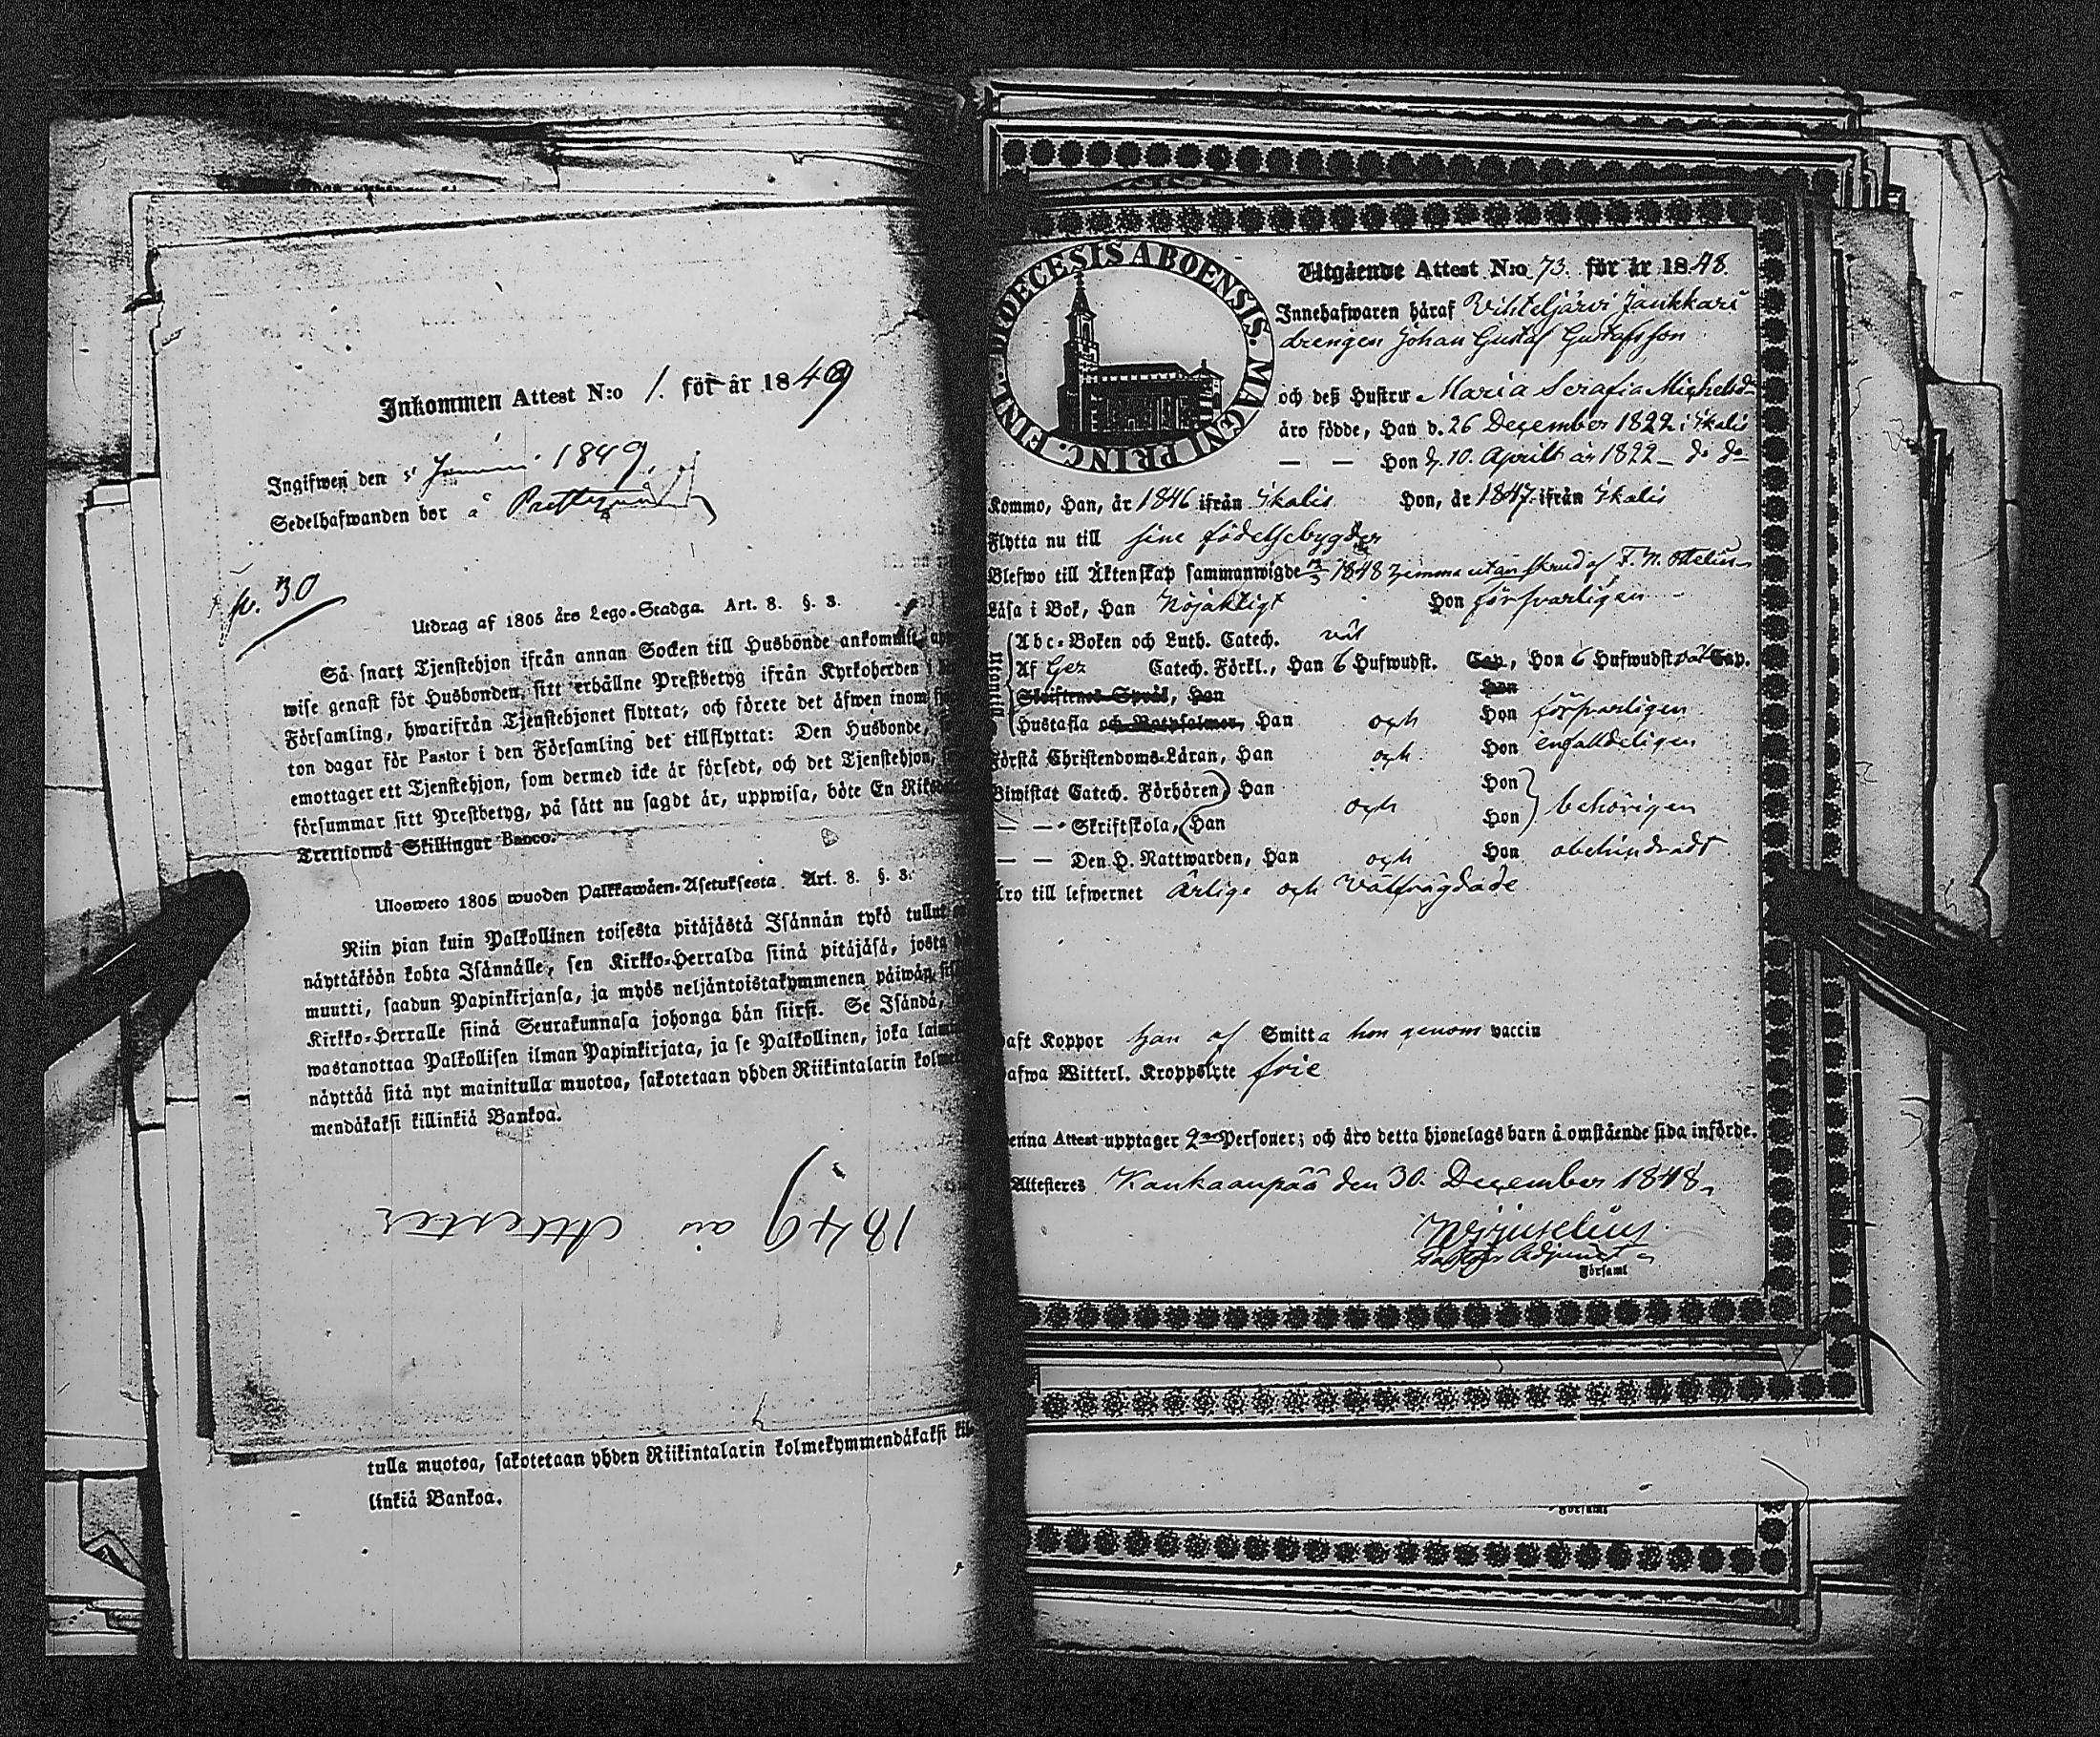 Inkommen Attest N:o 1. för år 1849
Ingifwen den 1849
Sedelhafwanden bor å
p. 30
Utdrag af 1805 års Lego-Stadga. Art. 8. §. 3.
Så snart Tjenstehjon ifrån annan Socken till Husbonde ankommit,
wise genast för Husbonden, sitt erhållne Prestbetyg ifrån Kyrkoherden i
Församling, hwarifrån Tjenstehjonet flyttat, och förete det äfwen inom
ton dagar för Pastor i den Församling det tillflyttat: Den Husbonde,
emottager ett Tjenstehjon, som dermed icke är försedt, och det Tjenstehjon,
försummar sitt Prestbetyg, på sätt nu sagdt är, uppwisa, böte En
Trettiotwå Skillingar Banco.
Ulosweto 1805 wuoden Palkkawäen-Asetuksesta. Art. 8. §. 3.
Niin pian kuin Palkollinen toisesta pitäjästä Isännän tykö tullut
näyttäköön kohta Isännälle, sen Kirkko-Herralda siinä pitäjäsä, josta
muutti, saadun Papinkirjansa, ja myös neljäntoistakymmenen päiwän
Kirkko-Herralle siinä Seurakunnasa johonga hän siirsi. Se Isändä,
wastanottaa Palkollisen ilman Papinkirjata, ja se Palkollinen, joka
näyttää sitä nyt mainitulla muotoa, sakotetaan yhden Riikintalarin
mendäkaksi killinkiä Bankoa.
1849 års Attester
tulla muotoa, sakotetaan yhden Riikintalarin kolmekymmendäkaksi
linkiä Bankoa.
DIOECESIS ABOENSIS. MAGNI PRINC. FINL.
Utgående Attest N:o 73. för år 1848.
Innehafwaren häraf Vihteljärvi Jaukkari
drengen Johan Gustaf Gustafsson
och deß Hustru Maria Serafia Michelsd
äro födde, Han d. 26 December 1822 i Ikalis
— — Hon d. 10. Aprill år 1822 — do do
Kommo, Han, år 1846 ifrån Ikalis Hon, år 1847 ifrån Ikalis
Flytta nu till sine födelsebygder
Blefwo till Äktenskap sammanwigde 1848 hemma utan skrud af F. N. Ottelin
Läsa i Bok, Han Nöjaktigt Hon försvarligen
Abc-Boken och Luth. Catech. väl
Af Gez Catech. Förkl., Han 6 Hufwudst. Cap., Hon 6 Hufwudst väl Cap.
Skriftenes Språk, Han Hon
Hustafla och Botpsalmer, Han och Hon försvarligen
Förstå Christendoms-Läran, Han och Hon enfalldeligen
Biwistat Catech. Förhören Han Hon
— — Skriftskola, Han och Hon behörigen
— — Den H. Nattwarden, Han och Hon obehindradt
Äro till lefwernet ärlige och välfrägdade
Haft Koppor han af Smitta hon genom vaccin
Hafwa Witterl. Kroppslyte frie
Denna Attest upptager 2 Personer; och äro detta hjonelags barn å omstående sida införde.
Attesteres Kankaanpää den 30. December 1848.
Adjunct
Församl